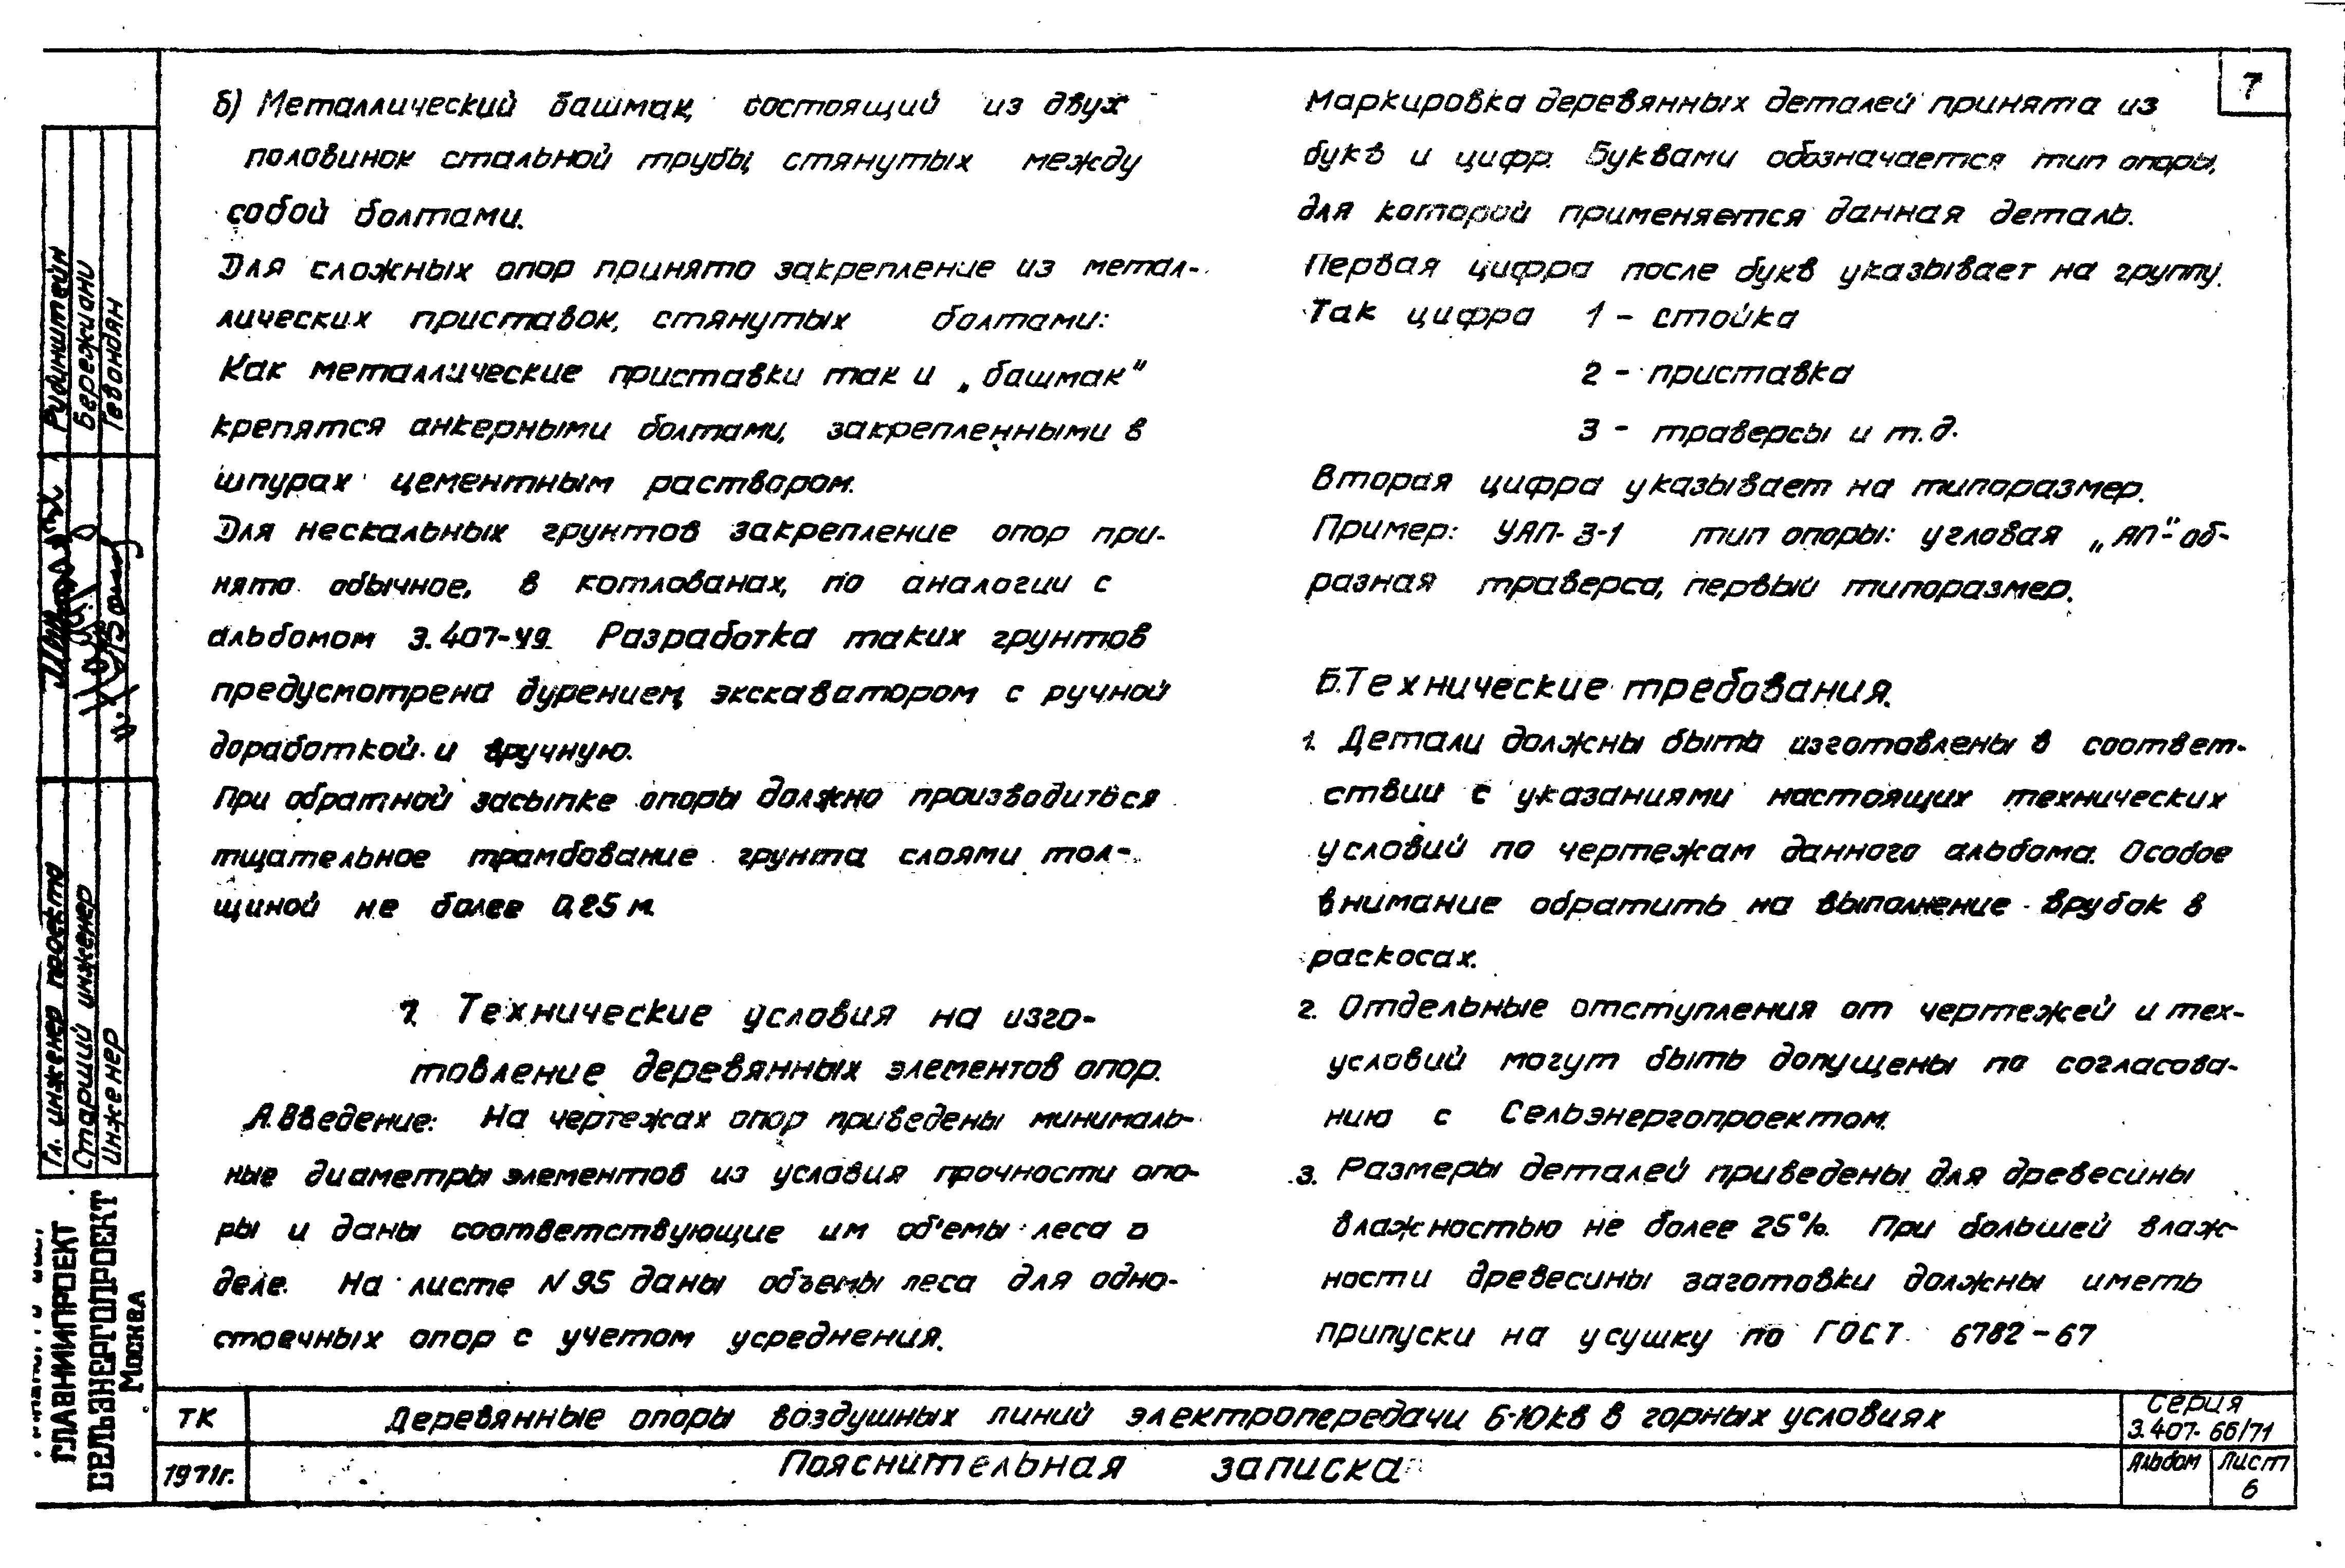 7
б) Металлический башмак, состоящий из двух
половинок стальной трубы, стянутых между
собой болтами.
Для сложных опор принято закрепление из метал-
лических приставок, стянутых болтами:
Как металлические приставки так и „башмак"
крепятся анкерными болтами, закрепленными в
шпурах цементным раствором.
Для нескальных грунтов закрепление опор при-
нято обычное, в котлованах, по аналогии с
альбомом 3.407-49. Разработка таких грунтов
предусмотрена бурением, экскаватором с ручной
доработкой и вручную.
При обратной засыпке опоры должно производиться
тщательное трамбование грунта слоями тол-
щиной не более 0,25 м.
7. Технические условия на изго-
товление деревянных элементов опор.
А. Введение: На чертежах опор приведены минималь-
ные диаметры элементов из условия прочности опо-
ры и даны соответствующие им об'емы леса в
деле. На листе N 95 даны объемы леса для одно-
стоечных опор с учетом усреднения.
Маркировка деревянных деталей принята из
букв и цифр. Буквами обозначается тип опоры,
для которой применяется данная деталь.
Первая цифра после букв указывает на группу.
Так цифра 1 - стойка
2 - приставка
3 - траверсы и т.д.
Вторая цифра указывает на типоразмер.
Пример: УАП-3-1 тип опоры: угловая „АП"-об-
разная траверса, первый типоразмер.
Б. Технические требования.
1. Детали должны быть изготовлены в соответ-
ствии с указаниями настоящих технических
условий по чертежам данного альбома. Особое
внимание обратить на выполнение врубок в
раскосах.
2. Отдельные отступления от чертежей и тех-
условий могут быть допущены по согласова-
нию с Сельэнергопроектом.
3. Размеры деталей приведены для древесины
влажностью не более 25%. При большей влаж-
ности древесины заготовки должны иметь
припуски на усушку по ГОСТ 6782-67
Гл. инженер проекта Рудинштейн
Старший инженер Бережиани
Инженер Гевондян
ГЛАВНИИПРОЕКТ
СЕЛЬЭНЕРГОПРОЕКТ
Москва
ТК
1971г.
Деревянные опоры воздушных линий электропередачи 6-10кв в горных условиях
Пояснительная записка
Серия
3.407-66/71
Альбом
Лист
6